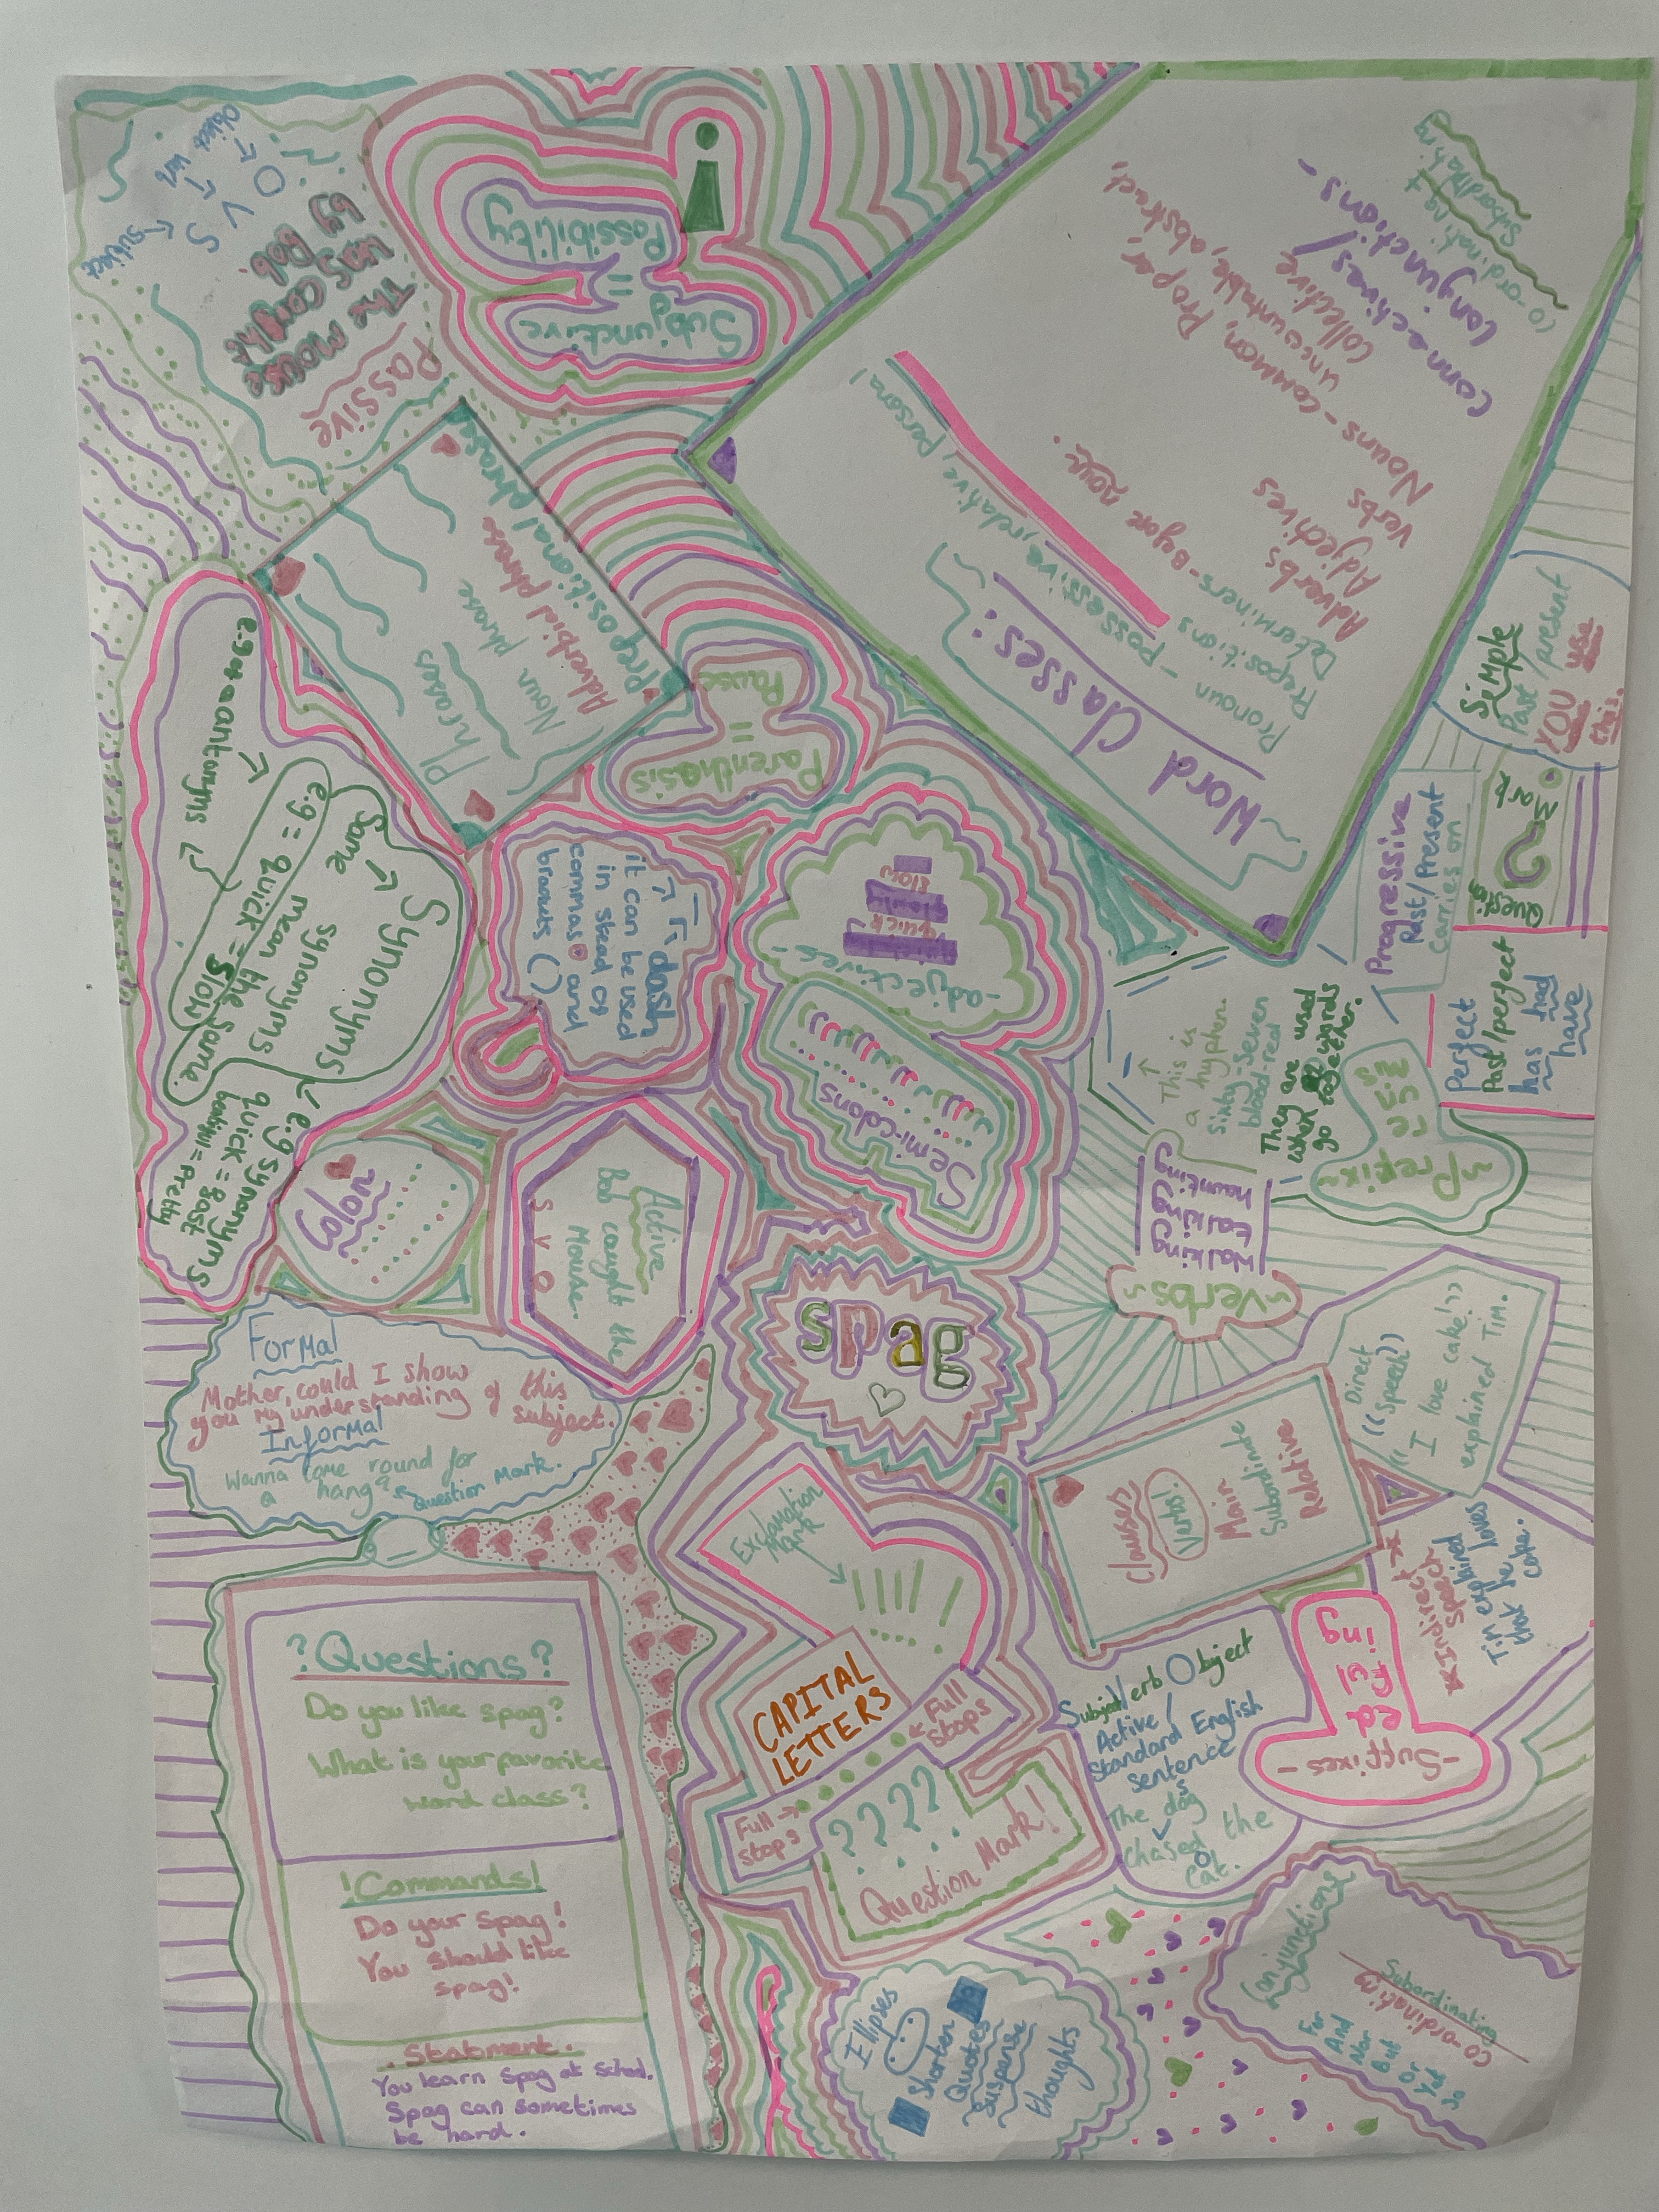 spag
Formal
Mother, could I show
you my understanding of this
subject.
Informal
Wanna come round for
a hang?
Question Mark.
?Questions?
Do you like spag?
What is your favorite
word class?
!Commands!
Do your spag!
You should like
spag!
.Statment.
You learn spag at school.
Spag can sometimes
be hard.
Exclamation
Mark
CAPITAL
LETTERS
Full
stops
Full
stops
? ? ? ?
Question Mark!
Ellipses
Shorten
Quotes
Suspense
thoughts
Subject Verb Object
Active /
Standard English
sentence
S
The dog
V
chased the
O
cat.
Conjunctions
Subordinating
co-ordinating
For
And
Nor
But
Or
Yet
So
-Suffixes-
ed
ful
ing
Indirect
speech
Tim explained
that he loves
cake.
Direct
((Speech))
"I love cake!"
explained Tim.
Clauses
Verbs!
Main
Subordinate
Relative
Verbs
walking
talking
haunting
Prefix
re
dis
mis
This is
a hyphen.
sixty-seven
blood-red
They are used
when
go
together.
Perfect
Past/perfect
has had
have
Progressive
Past/Present
carries on
Question
Mark
Simple
Past/present
YOU use
this.
Word Classes:
Pronoun - possessive, relative, personal
Prepositions
Determiners - Before noun.
Adverbs
Adjectives
Verbs
Nouns - common, Proper,
uncountable, abstract,
collective
Connectives/
Conjunctions -
Co-ordinating +
Subordinating
Subjunctive
=
Possibility
Passive
The mouse
was caught
by Bob.
S V O
subject
verb
object
Phrases
Noun phrase
Adverbial phrase
Prepositional phrases
Parenthesis
=
Pause
-adjectives-
quick
slow
Semi-colons
dash
it can be used
in stead of
commas and
brackets ()
Active
Bob caught the
Mouse.
S V O
colon
Synonyms
Same
synonyms
mean the same.
e.g = quick = slow
e.g synonyms
quick = fast
beautiful = Pretty
antonyms